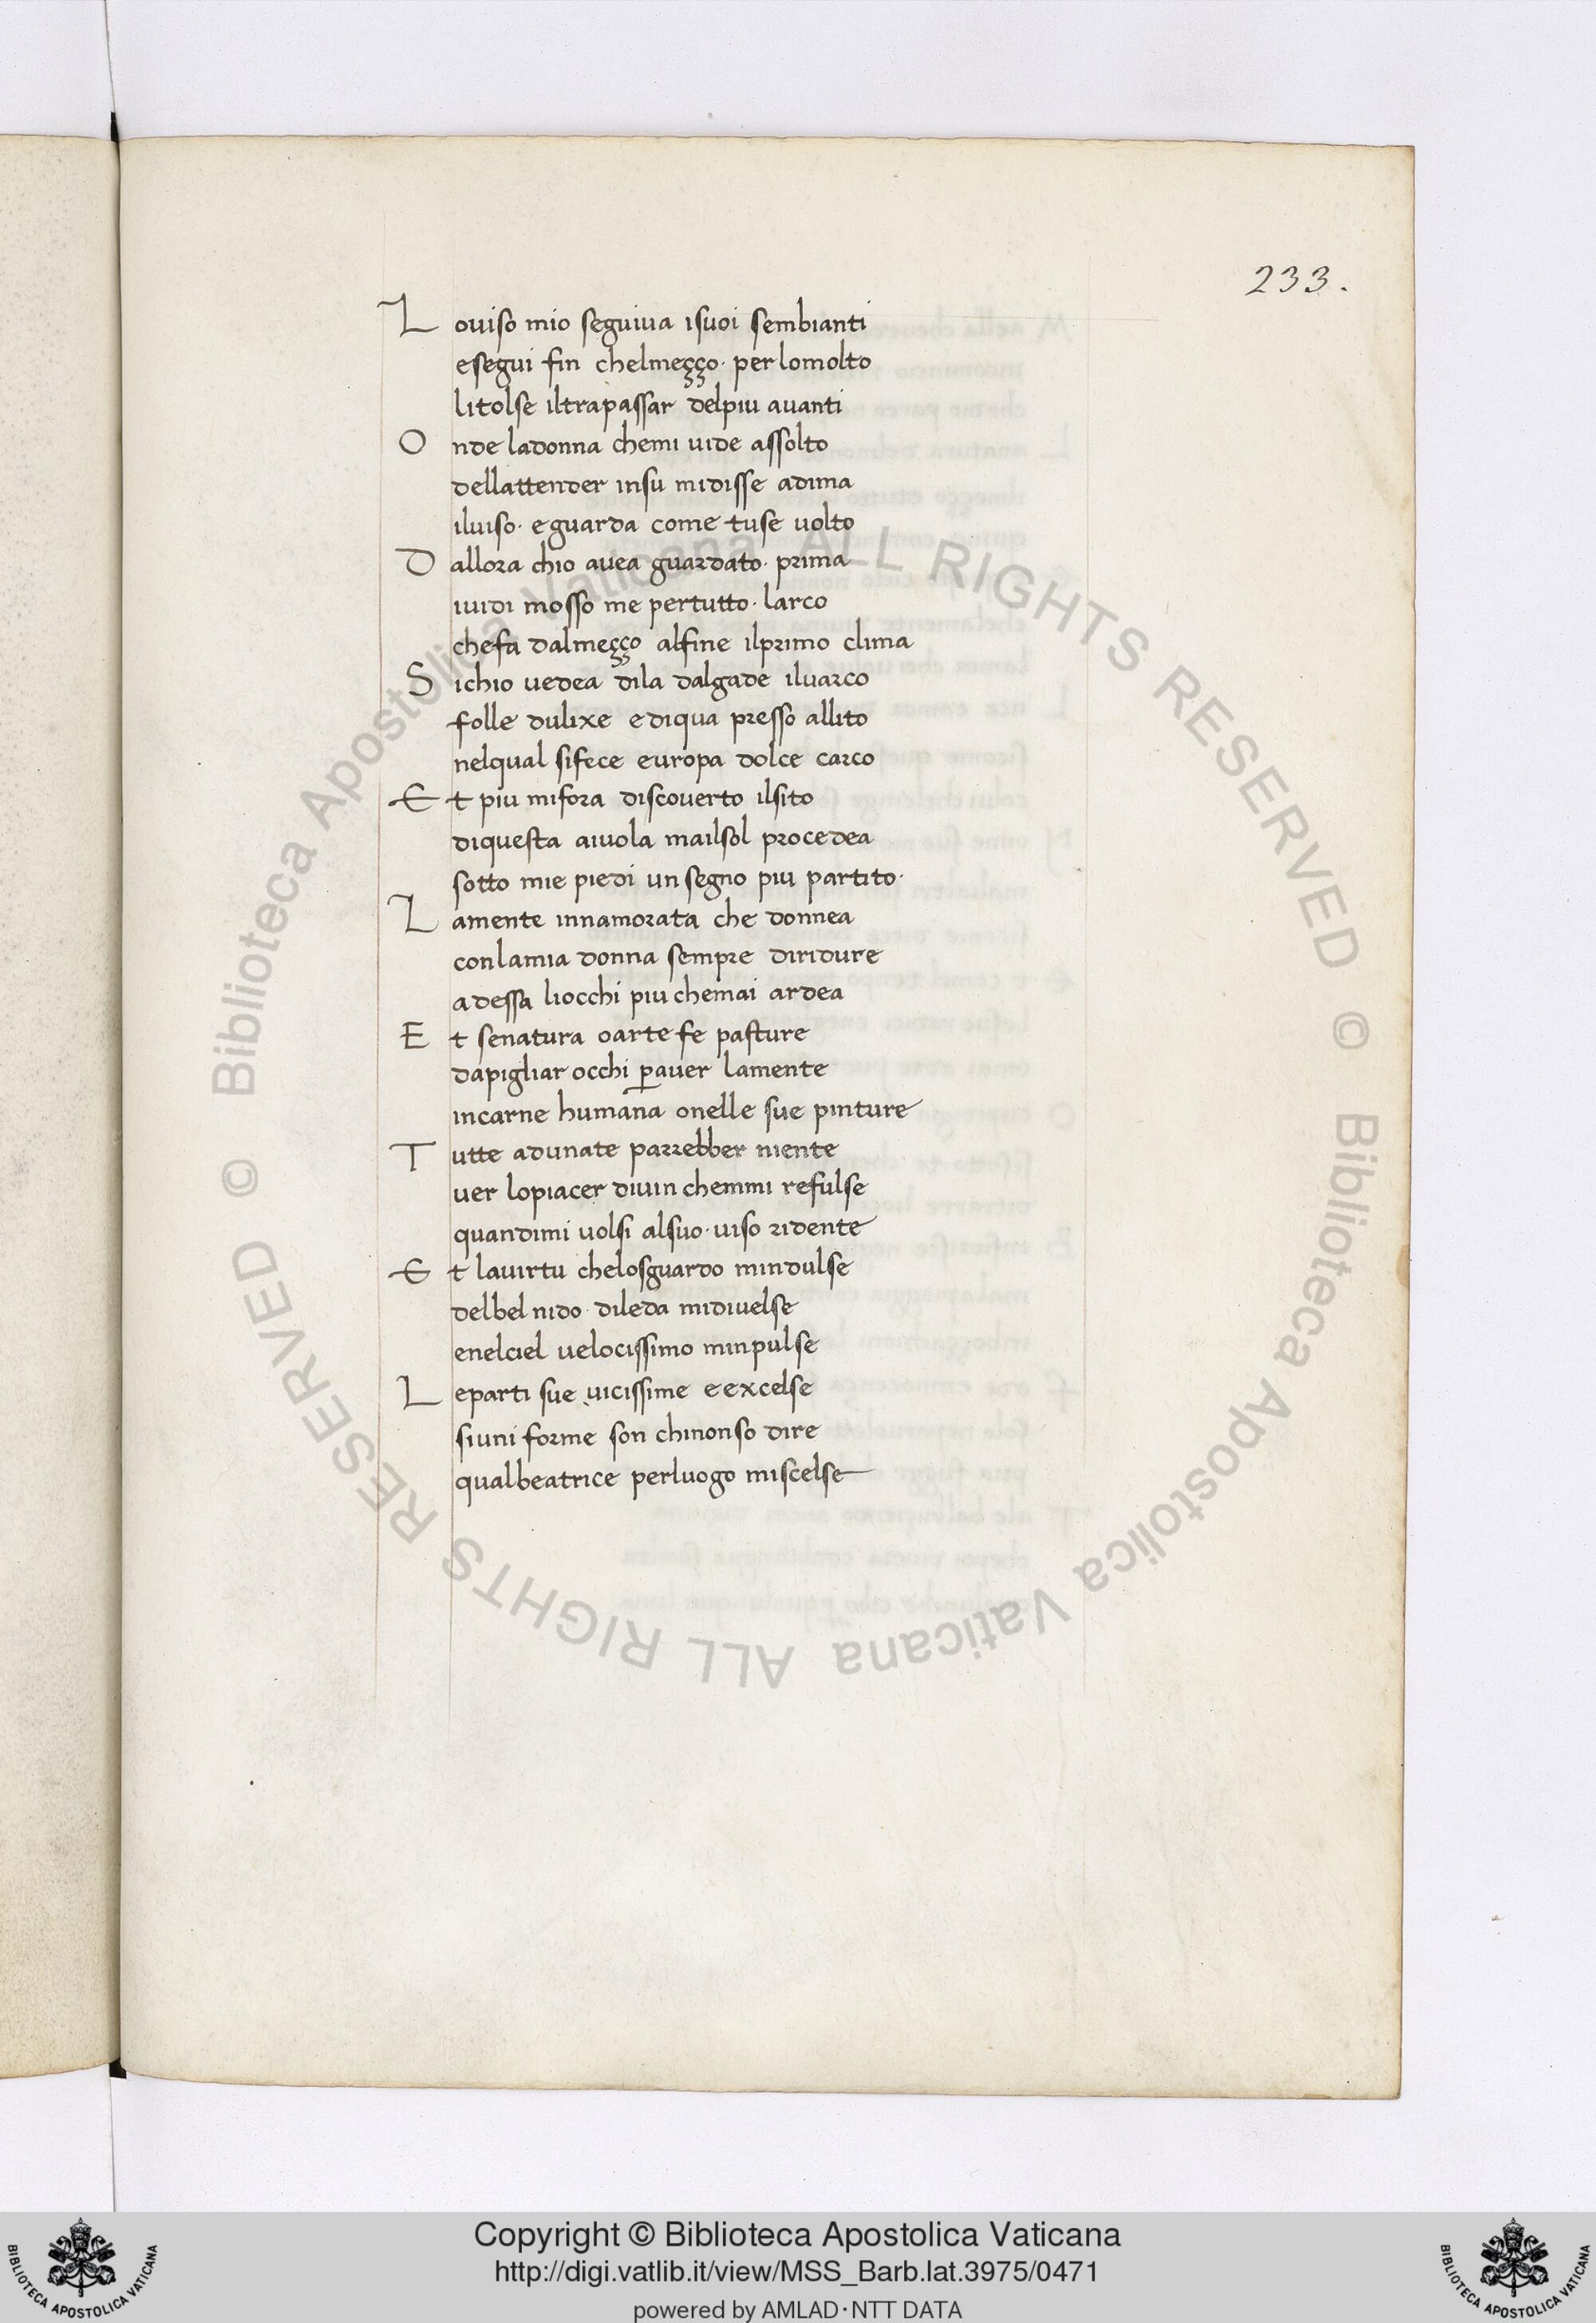 233.
L oviso mio seguiua isuoi sembianti
esegui fin chelmeççço· per lomolto
litolse iltrapassar delpiu auanti
O nde ladonna chemi uide assolto
dellattender insu midisse adima
iluiso· eguarda come tuse uolto
D allora chio auea guardato· prima
iuidi mosso me pertutto· larco
chefa dalmeçço alfine ilprimo clima
S ichio uedea dila dalgade iluarco
folle dulixe ediqua presso allito
nelqual sifece europa dolce carco
E t piu mifora discouerto ilsito
diquesta aiuola mailsol procedea
sotto mie piedi un segno piu partito·
L amente innamorata che donnea
conlamia donna sempre diridure
adessa liocchi piu chemai ardea
E t senatura oarte fe pasture
dapigliar occhi ꝑauer lamente
incarne humana onelle sue pinture
T utte adunate parrebber niente
uer lopiacer diuin chemmi refulse
quandimi uolsi alsuo· uiso ridente
E t lauirtu chelosguardo mindulse
delbel nido· dileda midiuelse
enelciel uelocissimo minpulse
L eparti sue uicissime eexcelse
siuni forme son chinonso dire
qualbeatrice perluogo miscelse
© Biblioteca Apostolica Vaticana ALL RIGHTS RESERVED © Biblioteca Apostolica Vaticana ALL RIGHTS RESERVED
BIBLIOTECA APOSTOLICA VATICANA
Copyright © Biblioteca Apostolica Vaticana
http://digi.vatlib.it/view/MSS_Barb.lat.3975/0471
powered by AMLAD·NTT DATA
BIBLIOTECA APOSTOLICA VATICANA